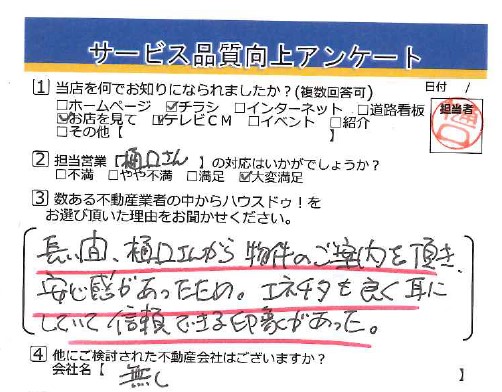 サービス品質向上アンケート
1 当店を何でお知りになられましたか？(複数回答可)
日付 /
□ホームページ ☑チラシ □インターネット □道路看板
☑お店を見て ☑テレビCM □イベント □紹介
□その他【 】
担当者
樋口
2 担当営業【樋口さん 】の対応はいかがでしょうか？
□不満 □やや不満 □満足 ☑大変満足
3 数ある不動産業者の中からハウスドゥ！を
お選び頂いた理由をお聞かせください。
長い間、樋口さんから物件のご案内を頂き、
安心感があったため。エネチタも良く耳に
していて信頼できる印象があった。
4 他にご検討された不動産会社はございますか？
会社名【 無し 】